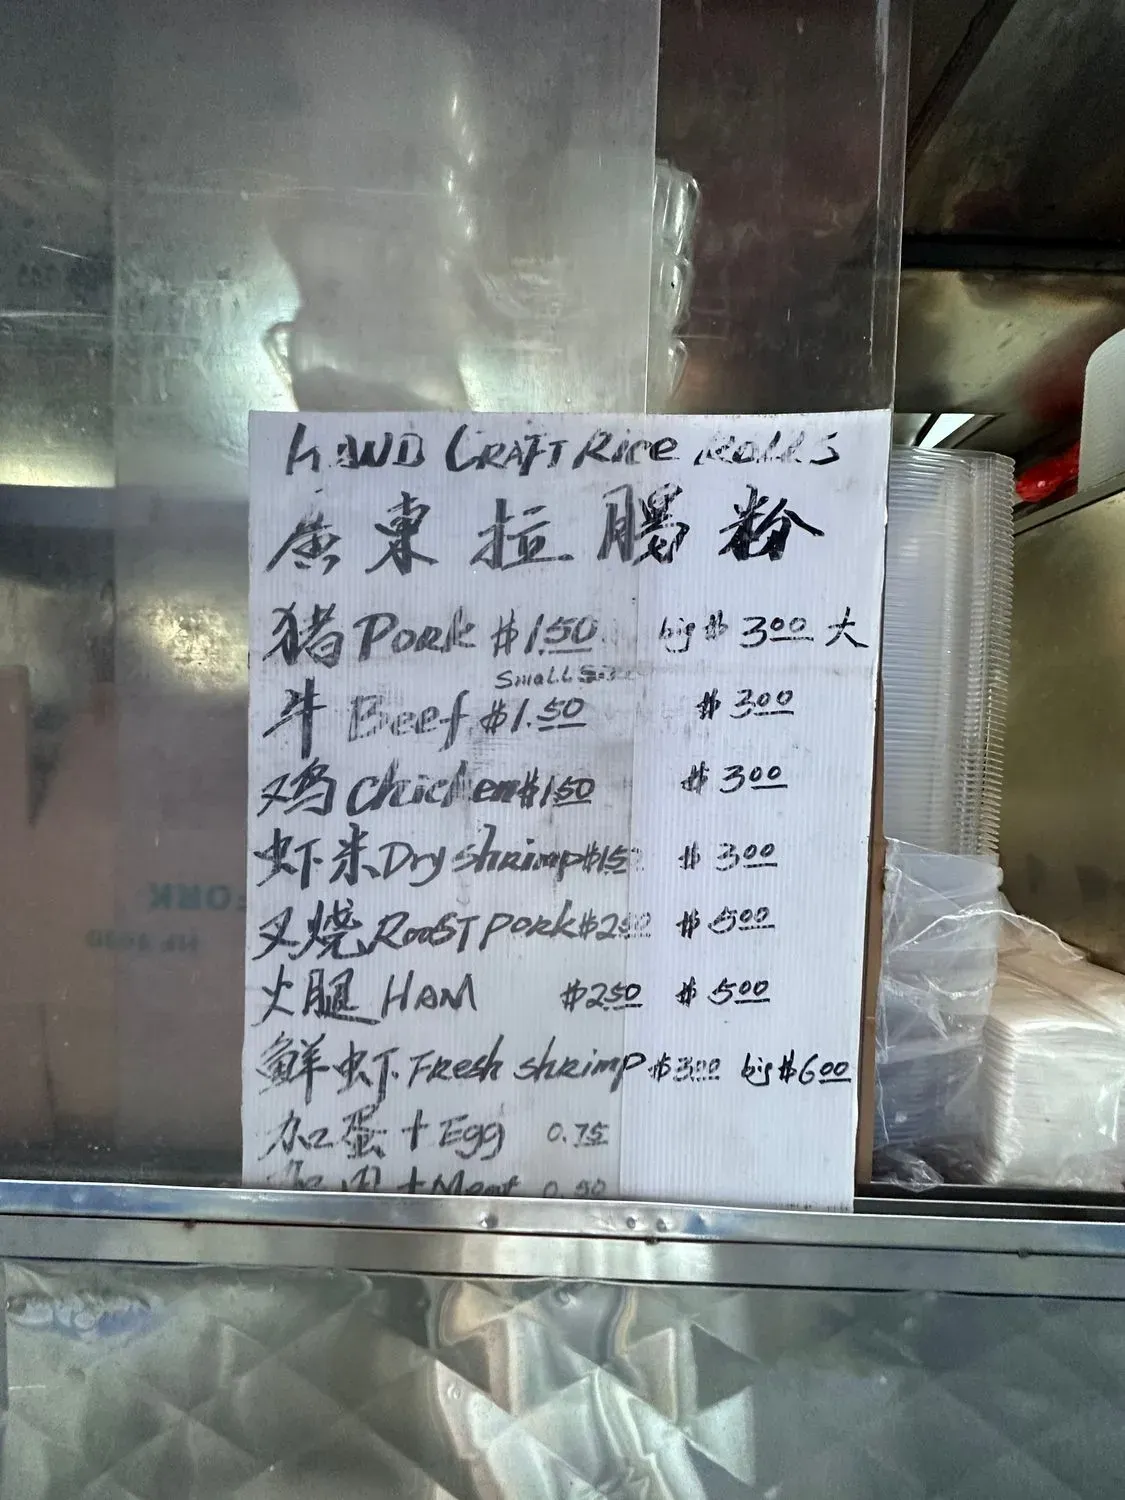 HAND CRAFT RICE ROLLS
廣東拉腸粉
猪 Pork $1.50 big $3.00 大
Small Size
牛 Beef $1.50 $3.00
鸡 Chicken $1.50 $3.00
虾米 Dry shrimp $1.5 $3.00
叉烧 Roast Pork $2.50 $5.00
火腿 HAM $2.50 $5.00
鲜虾 Fresh shrimp $3.00 big $6.00
加蛋 + Egg 0.75
加肉 + Meat 0.50